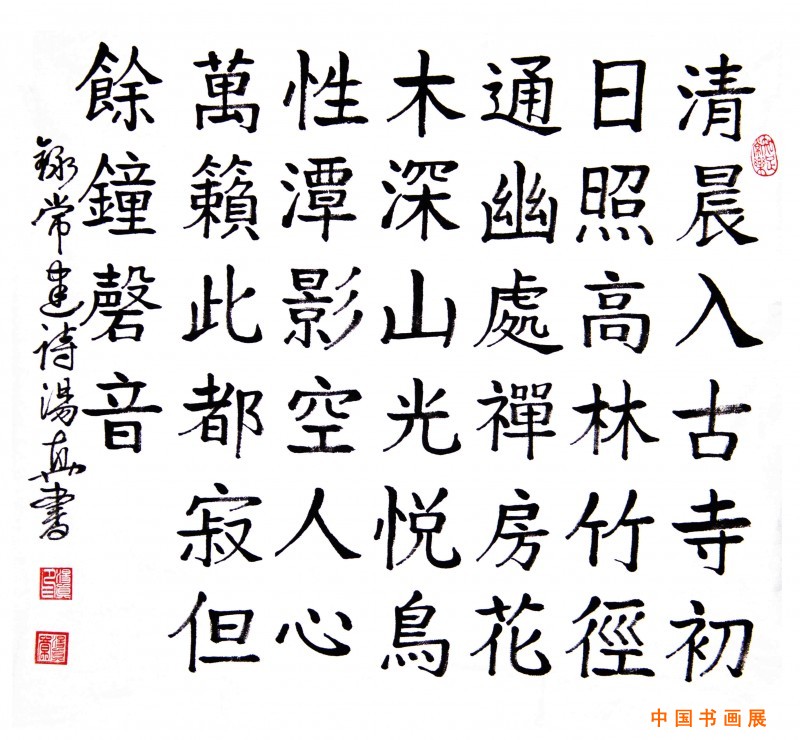 清晨入古寺初
日照高林竹徑
通幽處禪房花
木深山光悅鳥
性潭影空人心
萬籟此都寂但
餘鐘磬音
錄常建诗湯真書
中国书画展